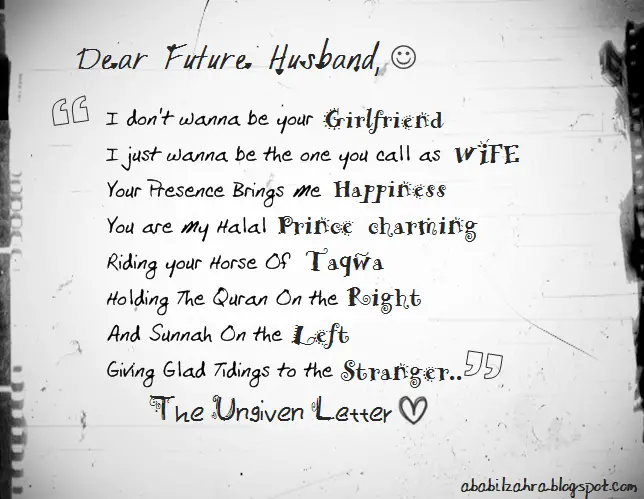 Dear Future Husband, ☺
“ I don't wanna be your Girlfriend
I just wanna be the one you call as WiFE
Your Presence Brings me Happiness
You are my Halal Prince charming
Riding your Horse Of Taqwa
Holding The Quran On the Right
And Sunnah On the Left
Giving Glad Tidings to the Stranger.. ”
The Ungiven Letter ♡
ababilzahra.blogspot.com